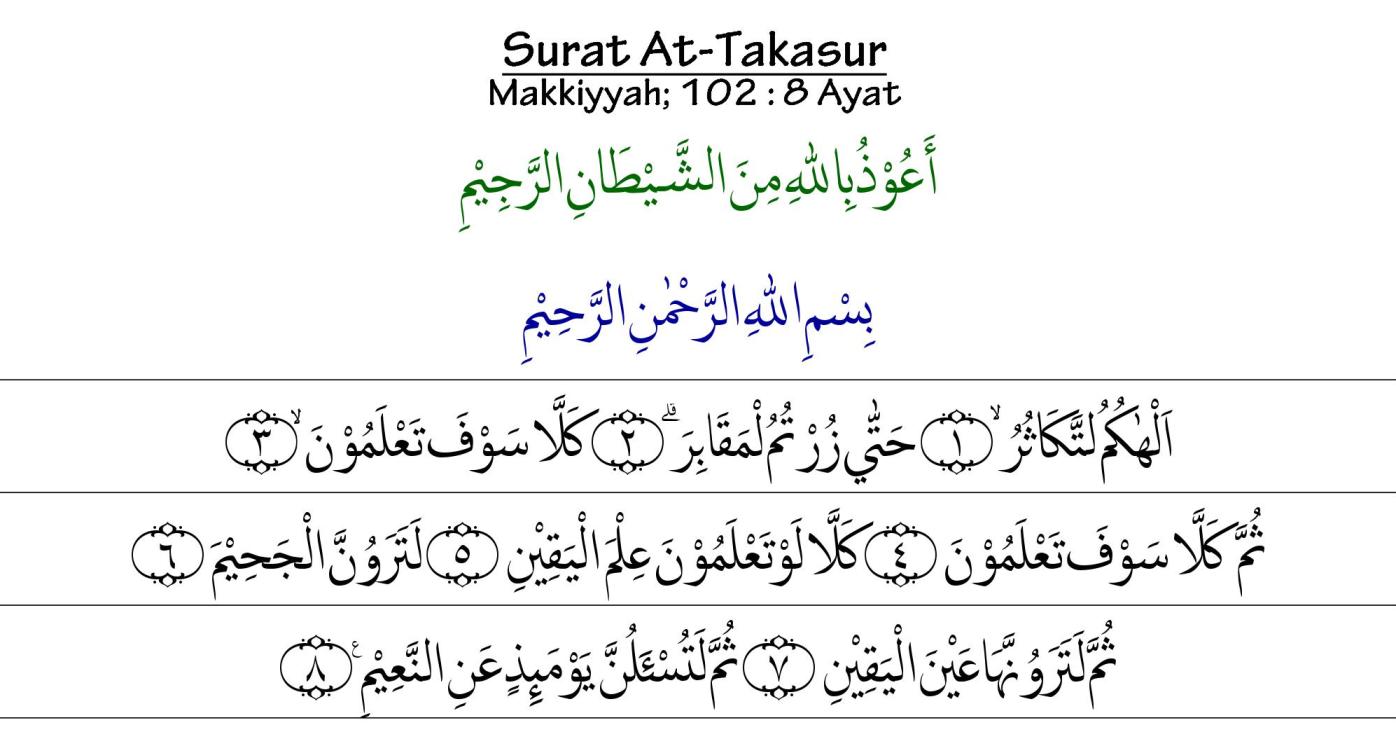 Surat At-Takasur
Makkiyyah; 102 : 8 Ayat
أَعُوْذُ بِاللهِ مِنَ الشَّيْطَانِ الرَّجِيْمِ
بِسْمِ اللهِ الرَّحْمٰنِ الرَّحِيْمِ
اَلْهٰكُمُ لتَّكَاثُرُۙ ۝١ حَتّٰي زُرْتُمُ لْمَقَابِرَۗ ۝٢ كَلَّا سَوْفَ تَعْلَمُوْنَۙ ۝٣
ثُمَّ كَلَّا سَوْفَ تَعْلَمُوْنَ ۝٤ كَلَّا لَوْ تَعْلَمُوْنَ عِلْمَ الْيَقِيْنِ ۝٥ لَتَرَوُنَّ الْجَحِيْمَ ۝٦
ثُمَّ لَتَرَوُنَّهَا عَيْنَ الْيَقِيْنِ ۝٧ ثُمَّ لَتُسْئَلُنَّ يَوْمَئِذٍ عَنِ النَّعِيْمِ ࣖ ۝٨